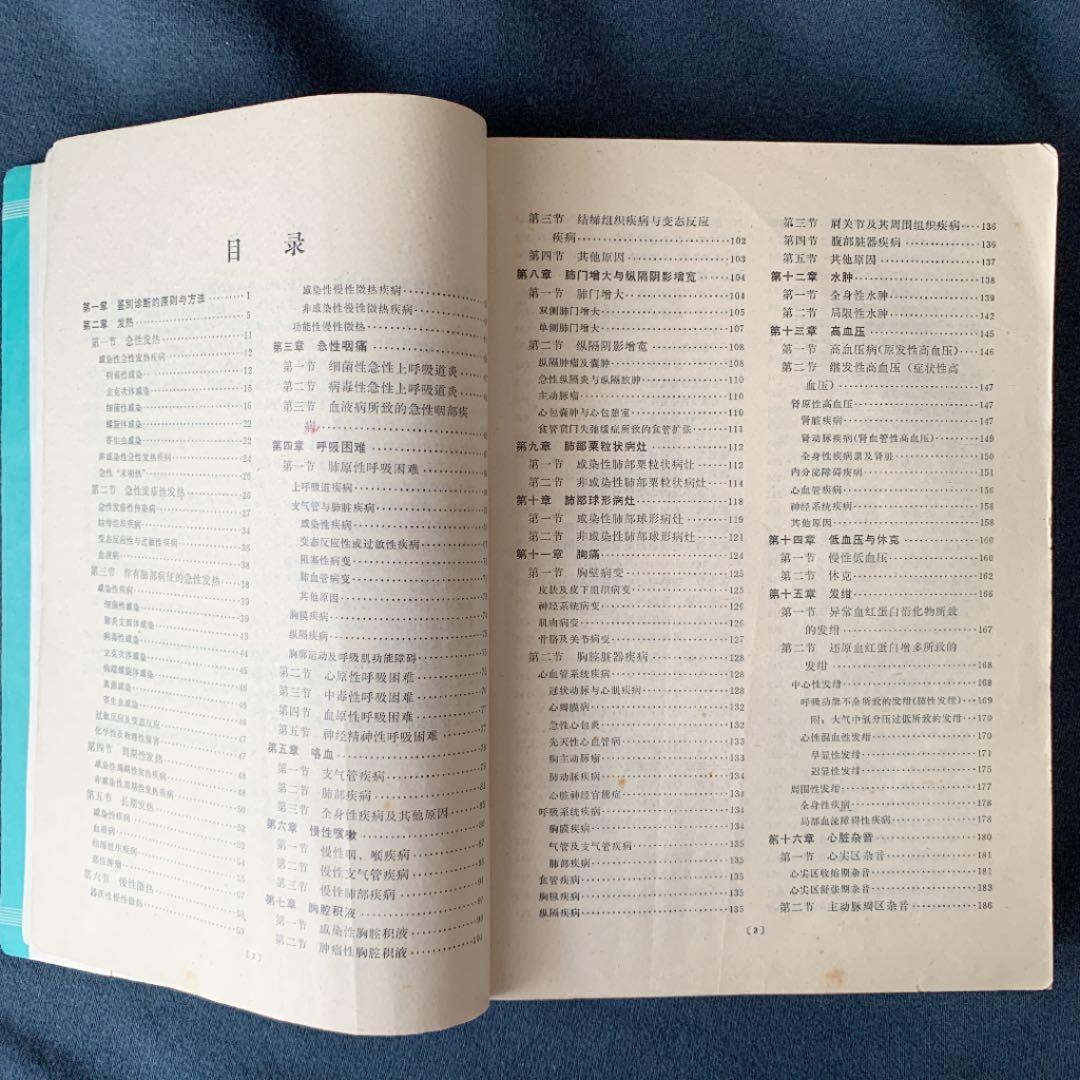 目 录
第一章 鉴别诊断的原则与方法………1
第二章 发热………5
第一节 急性发热………11
感染性急性发热疾病………12
病毒性感染………12
立克次体感染………15
细菌性感染………16
螺旋体感染………22
寄生虫感染………22
非感染性急性发热疾病………24
急性“未明热”………26
第二节 急性发疹性发热………27
急性发疹性传染病………27
结缔组织疾病………34
变态反应性与过敏性疾病………38
血液病………38
第三节 伴有肺部病征的急性发热………38
感染性疾病………39
细菌性感染………39
肺炎支原体感染………43
病毒性感染………44
立克次体感染………45
钩端螺旋体感染………46
真菌感染………46
寄生虫感染………46
过敏反应及变态反应………47
化学性及物理性损害………47
第四节 周期性发热………48
感染性周期性发热疾病………48
非感染性周期性发热疾病………50
第五节 长期发热………50
感染性疾病………52
血液病………52
结缔组织疾病………54
恶性肿瘤………55
第六节 慢性微热………57
器质性慢性微热………58
感染性慢性微热疾病………
非感染性慢性微热疾病………
功能性慢性微热………
第三章 急性咽痛………
第一节 细菌性急性上呼吸道炎………
第二节 病毒性急性上呼吸道炎………
第三节 血液病所致的急性咽部疾
病………
第四章 呼吸困难………
第一节 肺原性呼吸困难………
上呼吸道疾病………
支气管与肺脏疾病………
感染性疾病………
变态反应性或过敏性疾病………
阻塞性病变………
肺血管病变………
其他原因………
胸膜疾病………
纵隔疾病………
胸廓运动及呼吸肌功能障碍………
第二节 心原性呼吸困难………
第三节 中毒性呼吸困难………
第四节 血原性呼吸困难………
第五节 神经精神性呼吸困难………
第五章 咯血………
第一节 支气管疾病………
第二节 肺部疾病………
第三节 全身性疾病及其他原因………
第六章 慢性咳嗽………
第一节 慢性咽、喉疾病………
第二节 慢性支气管疾病………
第三节 慢性肺部疾病………
第七章 胸腔积液………
第一节 感染性胸腔积液………
第二节 肿瘤性胸腔积液………
第三节 结缔组织疾病与变态反应
疾病………102
第四节 其他原因………103
第八章 肺门增大与纵隔阴影增宽………104
第一节 肺门增大………104
双侧肺门增大………105
单侧肺门增大………107
第二节 纵隔阴影增宽………108
纵隔肿瘤及囊肿………108
急性纵隔炎与纵隔脓肿………110
主动脉瘤………110
心包囊肿与心包憩室………110
食管贲门失弛缓症所致的食管扩张………111
第九章 肺部粟粒状病灶………112
第一节 感染性肺部粟粒状病灶………112
第二节 非感染性肺部粟粒状病灶………114
第十章 肺部球形病灶………118
第一节 感染性肺部球形病灶………119
第二节 非感染性肺部球形病灶………121
第十一章 胸痛………124
第一节 胸壁病变………125
皮肤及皮下组织病变………125
神经系统病变………126
肌肉病变………126
骨骼及关节病变………127
第二节 胸腔脏器疾病………128
心血管系统疾病………128
冠状动脉与心肌疾病………128
心瓣膜病………131
急性心包炎………132
先天性心血管病………133
胸主动脉瘤………133
肺动脉疾病………134
心脏神经官能症………134
呼吸系统疾病………134
胸膜疾病………134
气管及支气管疾病………134
肺部疾病………134
食管疾病………135
胸腺疾病………135
纵隔疾病………135
第三节 肩关节及其周围组织疾病………136
第四节 腹部脏器疾病………136
第五节 其他原因………137
第十二章 水肿………138
第一节 全身性水肿………139
第二节 局限性水肿………142
第十三章 高血压………145
第一节 高血压病(原发性高血压)………146
第二节 继发性高血压(症状性高
血压)………147
肾原性高血压………147
肾脏疾病………147
肾动脉疾病(肾血管性高血压)………149
全身性疾病累及肾脏………150
内分泌障碍疾病………151
心血管疾病………156
神经系统疾病………158
其他原因………158
第十四章 低血压与休克………160
第一节 慢性低血压………160
第二节 休克………162
第十五章 发绀………166
第一节 异常血红蛋白衍化物所致
的发绀………167
第二节 还原血红蛋白增多所致的
发绀………168
中心性发绀………168
呼吸功能不全所致的发绀(肺性发绀)………169
附：大气中氧分压过低所致的发绀………170
心性混血性发绀………170
早显性发绀………171
迟显性发绀………175
周围性发绀………177
全身性疾病………178
局部血流障碍性疾病………178
第十六章 心脏杂音………180
第一节 心尖区杂音………181
心尖区收缩期杂音………181
心尖区舒张期杂音………183
第二节 主动脉瓣区杂音………186
〔3〕